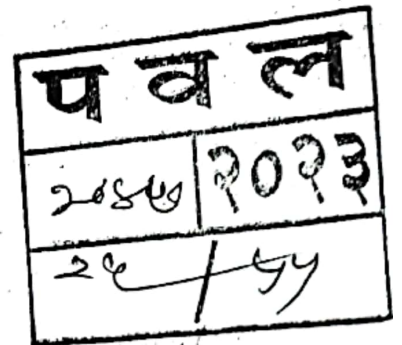 प व ल
२०४७ २०२३
२५ / ५५